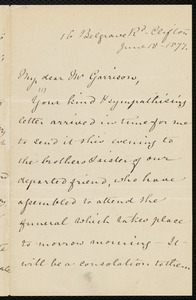 16 Belgrave Rd. Clifton
June 18 - 1877.
My dear Mr Garrison,
Your kind & sympathising
letter arrived in time for me
to send it this evening to
the brothers & sister of our
departed friend, who have
assembled to attend the
funeral which takes place
to morrow morning - It
will be a consolation to them